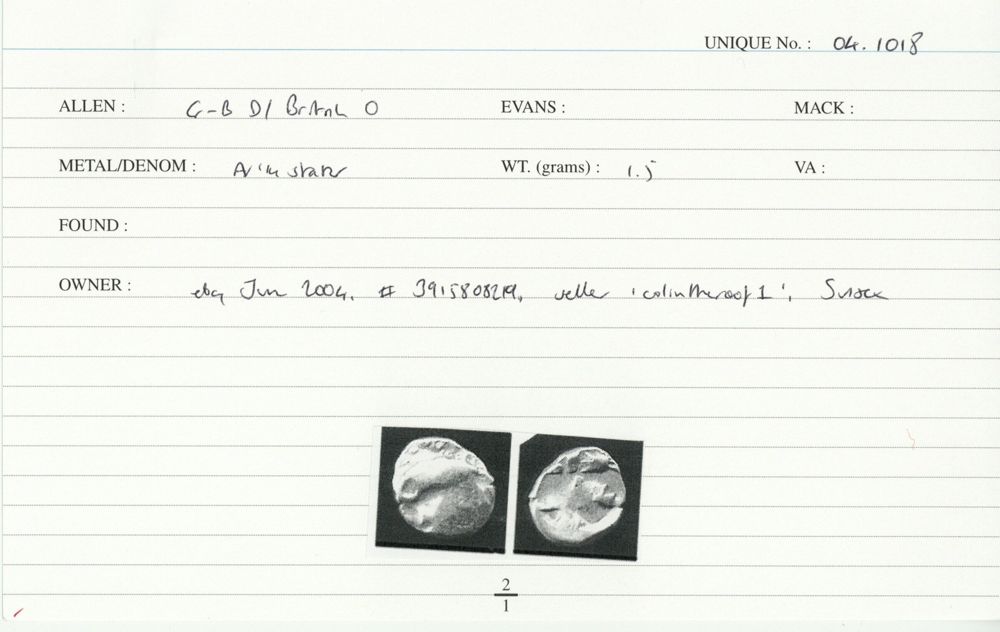 UNIQUE No. : 04. 1018
ALLEN : G-B D/ British O EVANS : MACK :
METAL/DENOM : AV 1/4 stater WT. (grams) : 1.5 VA :
FOUND :
OWNER : ebay Jun 2004, # 3915808219, seller 'colintheroof1', Sussex
2
1